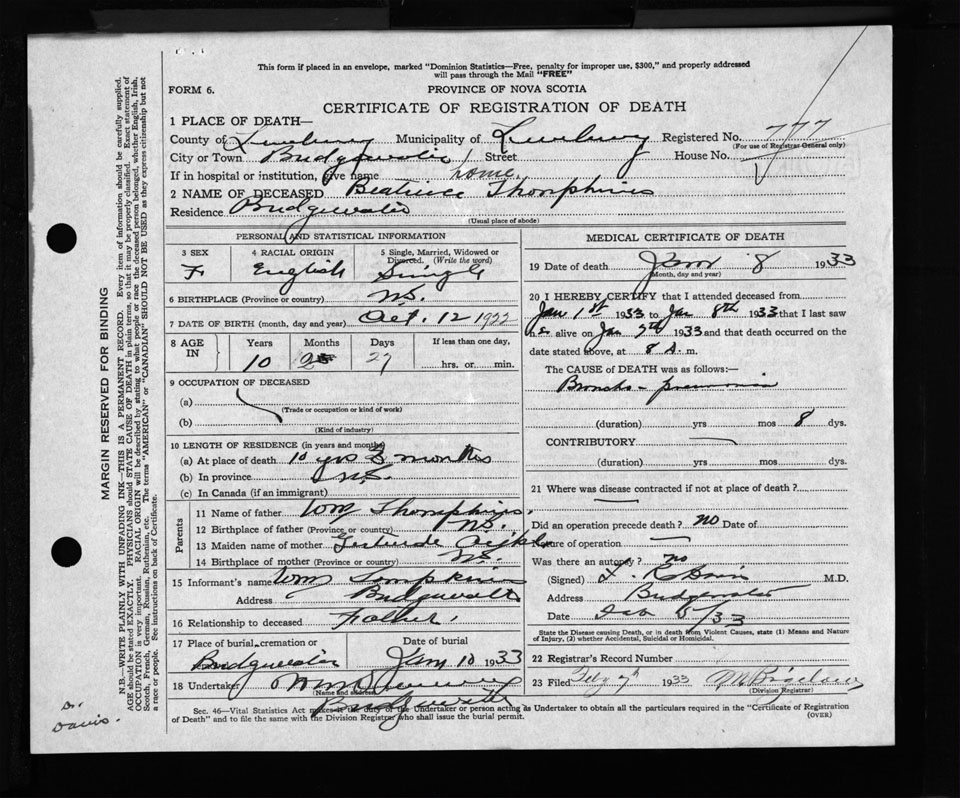 This form if placed in an envelope, marked "Dominion Statistics—Free, penalty for improper use, $300," and properly addressed
will pass through the Mail "FREE"
FORM 6.
PROVINCE OF NOVA SCOTIA
CERTIFICATE OF REGISTRATION OF DEATH
1 PLACE OF DEATH—
County of Lunenburg Municipality of Lunenburg Registered No. 777
(For use of Registrar General only)
City or Town Bridgewater Street House No.
If in hospital or institution, give name home.
2 NAME OF DECEASED Beatrice Thompkins
Residence Bridgewater
(Usual place of abode)
PERSONAL AND STATISTICAL INFORMATION
3 SEX 4 RACIAL ORIGIN 5 Single, Married, Widowed or
Divorced. (Write the word)
F English Single
6 BIRTHPLACE (Province or country) NS.
7 DATE OF BIRTH (month, day and year) Oct. 12 1922
8 AGE IN Years Months Days If less than one day,
10 2 27 hrs. or min.
9 OCCUPATION OF DECEASED
(a)
(Trade or occupation or kind of work)
(b)
(Kind of industry)
10 LENGTH OF RESIDENCE (in years and months)
(a) At place of death 10 yrs 3 months
(b) In province NS.
(c) In Canada (if an immigrant)
Parents
11 Name of father Wm Thompkins.
12 Birthplace of father (Province or country) NS.
13 Maiden name of mother Gertrude
14 Birthplace of mother (Province or country) NS.
15 Informant's name Wm Tompkins
Address Bridgewater
16 Relationship to deceased Father.
17 Place of burial, cremation or Date of burial
Bridgewater Jan 10 1933
18 Undertaker
(Name and address)
Bridgewater
MEDICAL CERTIFICATE OF DEATH
19 Date of death Jan 8 1933
(Month, day and year)
20 I HEREBY CERTIFY that I attended deceased from
Jan 1st 1933 to Jan 8th 1933 that I last saw
h er alive on Jan 7th 1933 and that death occurred on the
date stated above, at 8 A. m.
The CAUSE of DEATH was as follows:—
Broncho-pneumonia
(duration) yrs mos 8 dys.
CONTRIBUTORY
(duration) yrs. mos. dys.
21 Where was disease contracted if not at place of death?
Did an operation precede death? no Date of
Nature of operation
Was there an autopsy? no
(Signed) M.D.
Address Bridgewater
Date /33
State the Disease causing Death, or in death from Violent Causes, state (1) Means and Nature
of Injury, (2) whether Accidental, Suicidal or Homicidal.
22 Registrar's Record Number
23 Filed Feby 7th 1933
(Division Registrar)
Sec. 46—Vital Statistics Act makes it the duty of the Undertaker or person acting as Undertaker to obtain all the particulars required in the "Certificate of Registration
of Death" and to file the same with the Division Registrar who shall issue the burial permit.
(OVER)
MARGIN RESERVED FOR BINDING
N.B.—WRITE PLAINLY WITH UNFADING INK—THIS IS A PERMANENT RECORD. Every item of information should be carefully supplied.
AGE should be stated EXACTLY. PHYSICIANS should STATE CAUSE OF DEATH in plain terms, so that it may be properly classified. Exact statement of
OCCUPATION is very important. RACIAL ORIGIN will be described by stating to what people or race the deceased person belonged, whether English, Irish,
Scotch, French, German, Russian, Ruthenian, etc. The terms "AMERICAN" or "CANADIAN" SHOULD NOT BE USED as they express citizenship but not
a race or people. See instructions on back of Certificate.
Dr.
Davis.